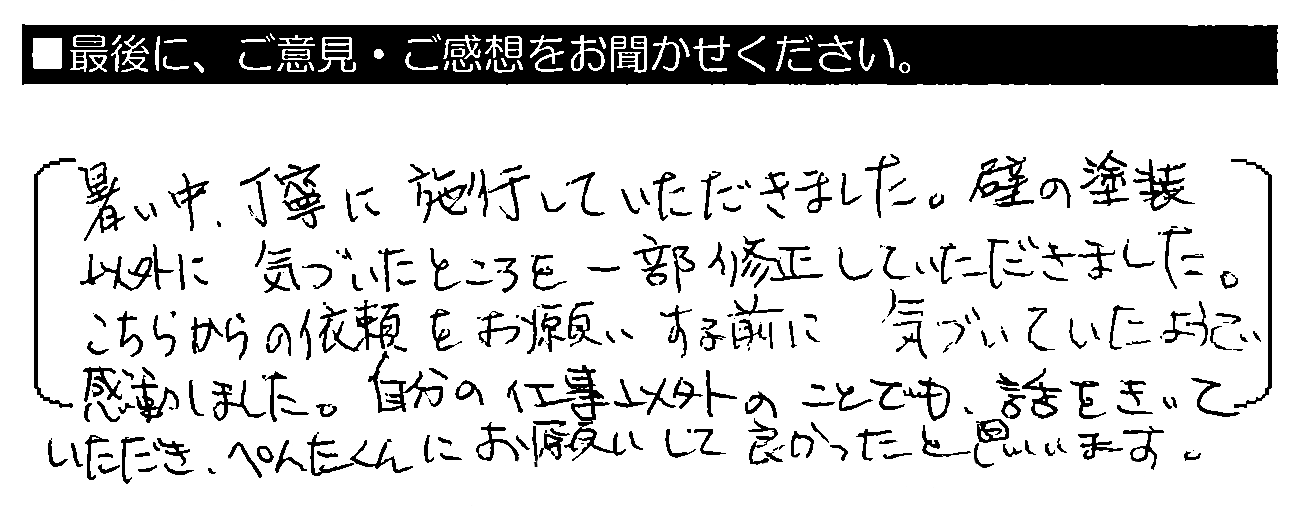 ■最後に、ご意見・ご感想をお聞かせください。
暑い中、丁寧に施行していただきました。壁の塗装
以外に 気づいたところを一部修正していただきました。
こちらからの依頼をお願いする前に 気づいていたようで
感動しました。自分の仕事以外のことでも、話をきいて
いただき、ぺんたくんにお願いして良かったと思います。